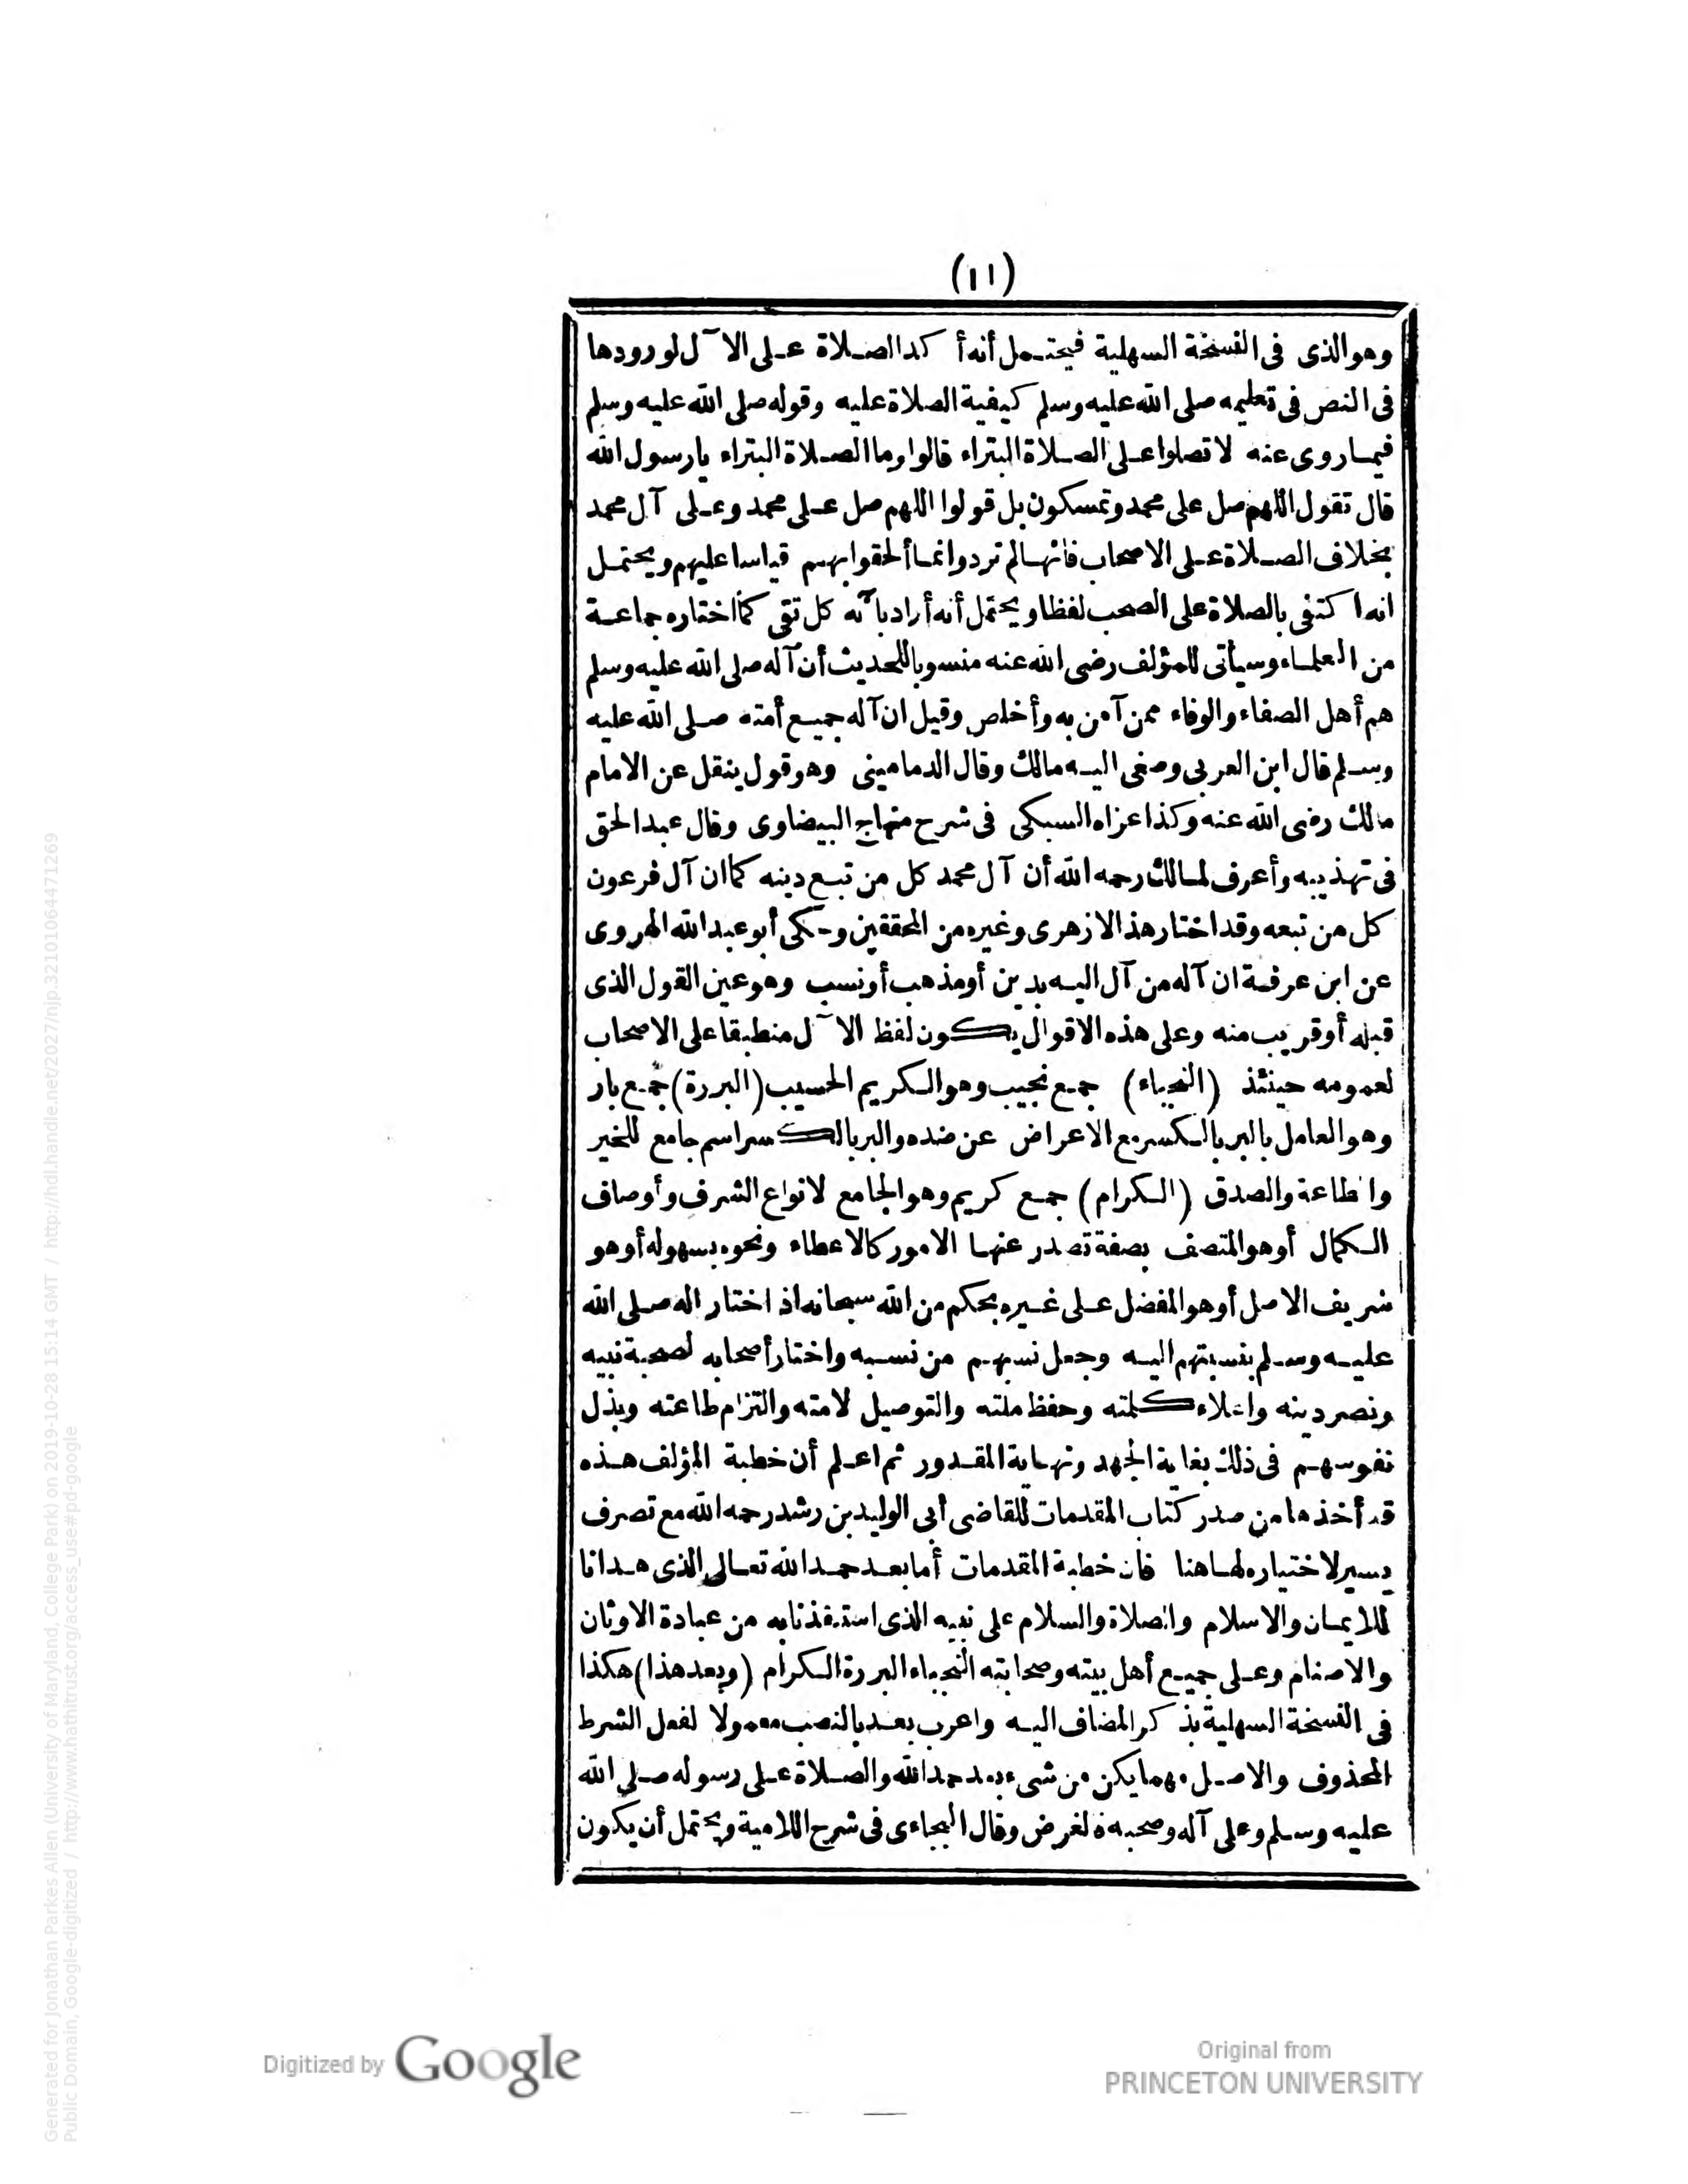 (١١)
وهوالذى فى النسخة السهلية فيحتمل أنه أكد الصلاة على الآل لورودها
فى النص فى تعليمه صلى الله عليه وسلم كيفية الصلاة عليه وقوله صلى الله عليه وسلم
فيما روى عنه لا تصلوا على الصلاة البتراء قالوا وما الصلاة البتراء يارسول الله
قال تقول اللهم صل على محمد وتمسكون بل قولوا اللهم صل على محمد وعلى آل محمد
بخلاف الصلاة على الاصحاب فانها لم ترد وانما ألحقوا بهم قياسا عليهم ويحتمل
انه اكتفى بالصلاة على الصحب لفظا ويحتمل أنه أراد بآله كل تقى كما اختاره جماعة
من العلماء وسيأتى للمؤلف رضى الله عنه منسوبا للحديث أن آله صلى الله عليه وسلم
هم أهل الصفاء والوفاء ممن آمن به وأخلص وقيل ان آله جميع أمته صلى الله عليه
وسلم قال ابن العربى وصغى اليه مالك وقال الدمامينى وهو قول ينقل عن الامام
مالك رضى الله عنه وكذا عزاه السبكى فى شرح منهاج البيضاوى وقال عبد الحق
فى تهذيبه وأعرف لمالك رحمه الله أن آل محمد كل من تبع دينه كما ان آل فرعون
كل من تبعه وقد اختار هذا الازهرى وغيره من المحققين وحكى أبو عبد الله الهروى
عن ابن عرفة ان آله من آل اليه بدين أو مذهب أو نسب وهو عين القول الذى
قبله أو قريب منه وعلى هذه الاقوال يكون لفظ الآل منطبقا على الاصحاب
لعمومه حينئذ (النجباء) جمع نجيب وهو الكريم الحسيب (البررة) جمع بار
وهو العامل بالبر بالكسر مع الاعراض عن ضده والبر بالكسر اسم جامع للخير
والطاعة والصدق (الكرام) جمع كريم وهو الجامع لانواع الشرف وأوصاف
الكمال أو هو المتصف بصفة تصدر عنها الامور كالاعطاء ونحوه بسهوله أو هو
شريف الاصل أو هو المفضل على غيره بحكم من الله سبحانه اذ اختار اله صلى الله
عليه وسلم بنسبتهم اليه وجعل نسبهم من نسبه واختار أصحابه لصحبة نبيه
ونصر دينه واعلاء كلمته وحفظ ملته والتوصيل لامته والتزام طاعته وبذل
نفوسهم فى ذلك بغاية الجهد ونهاية المقدور ثم اعلم أن خطبة المؤلف هذه
قد أخذها من صدر كتاب المقدمات للقاضى أبى الوليد بن رشد رحمه الله مع تصرف
يسير لاختياره لها هنا فان خطبة المقدمات أما بعد حمد الله تعالى الذى هدانا
للايمان والاسلام والصلاة والسلام على نبيه الذى استنقذنا به من عبادة الاوثان
والاصنام وعلى جميع أهل بيته وصحابته النجباء البررة الكرام (وبعد هذا) هكذا
فى النسخة السهلية بذكر المضاف اليه واعرب بعد بالنصب معمولا لفعل الشرط
المحذوف والاصل مهما يكن من شىء بعد حمد الله والصلاة على رسوله صلى الله
عليه وسلم وعلى آله وصحبه فالغرض وقال البجاءى فى شرح اللامية ويحتمل أن يكون
Digitized by Google
Original from
PRINCETON UNIVERSITY
Generated for Jonathan Parkes Allen (University of Maryland, College Park) on 2019-10-28 15:14 GMT / http://hdl.handle.net/2027/njp.32101064471269
Public Domain, Google-digitized / http://www.hathitrust.org/access_use#pd-google